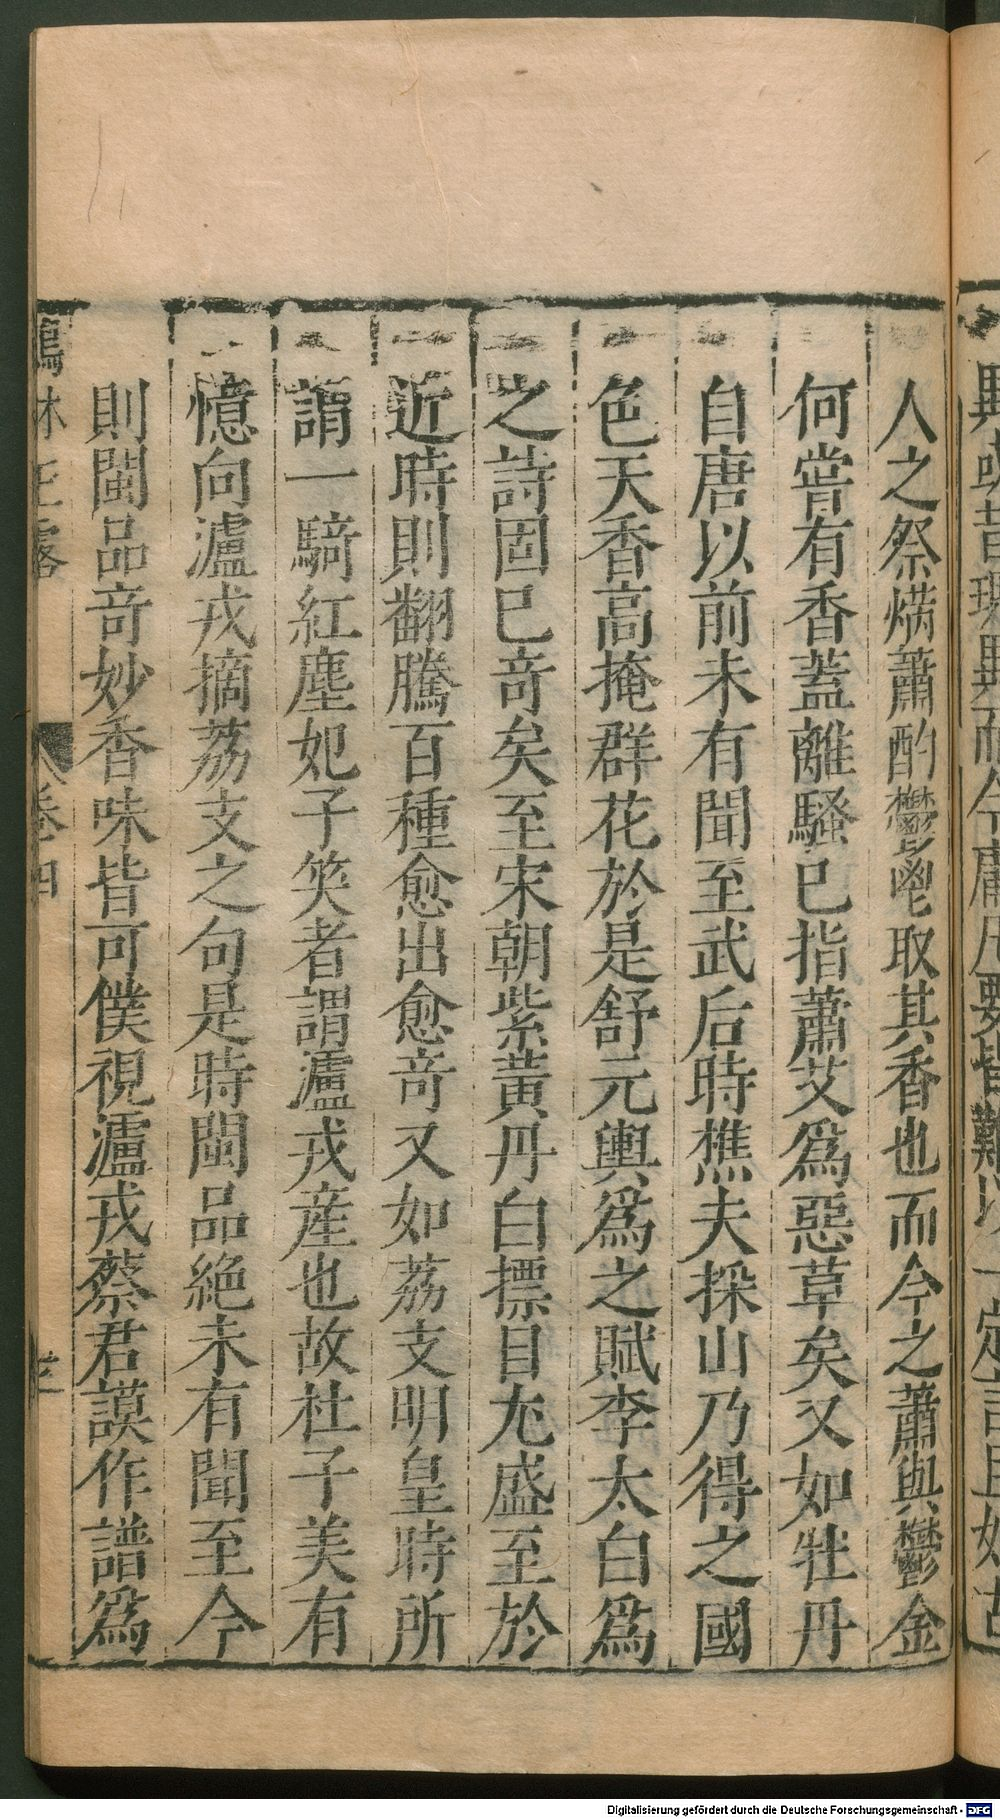 人之祭焫蕭酌鬱鬯取其香也而今之蕭與鬱金
何嘗有香蓋離騷已指蕭艾爲惡草矣又如牡丹
自唐以前未有聞至武后時樵夫採山乃得之國
色天香高掩群花於是舒元輿爲之賦李太白爲
之詩固已竒矣至宋朝紫黃丹白摽目尤盛至於
近時則翻騰百種愈出愈竒又如荔支明皇時所
謂一騎紅塵妃子笑者謂瀘戎產也故杜子美有
憶向瀘戎摘荔支之句是時閩品絕未有聞至今
則閩品竒妙香味皆可僕視瀘戎蔡君謨作譜爲
鶴林玉露
卷四
Digitalisierung gefördert durch die Deutsche Forschungsgemeinschaft - DFG